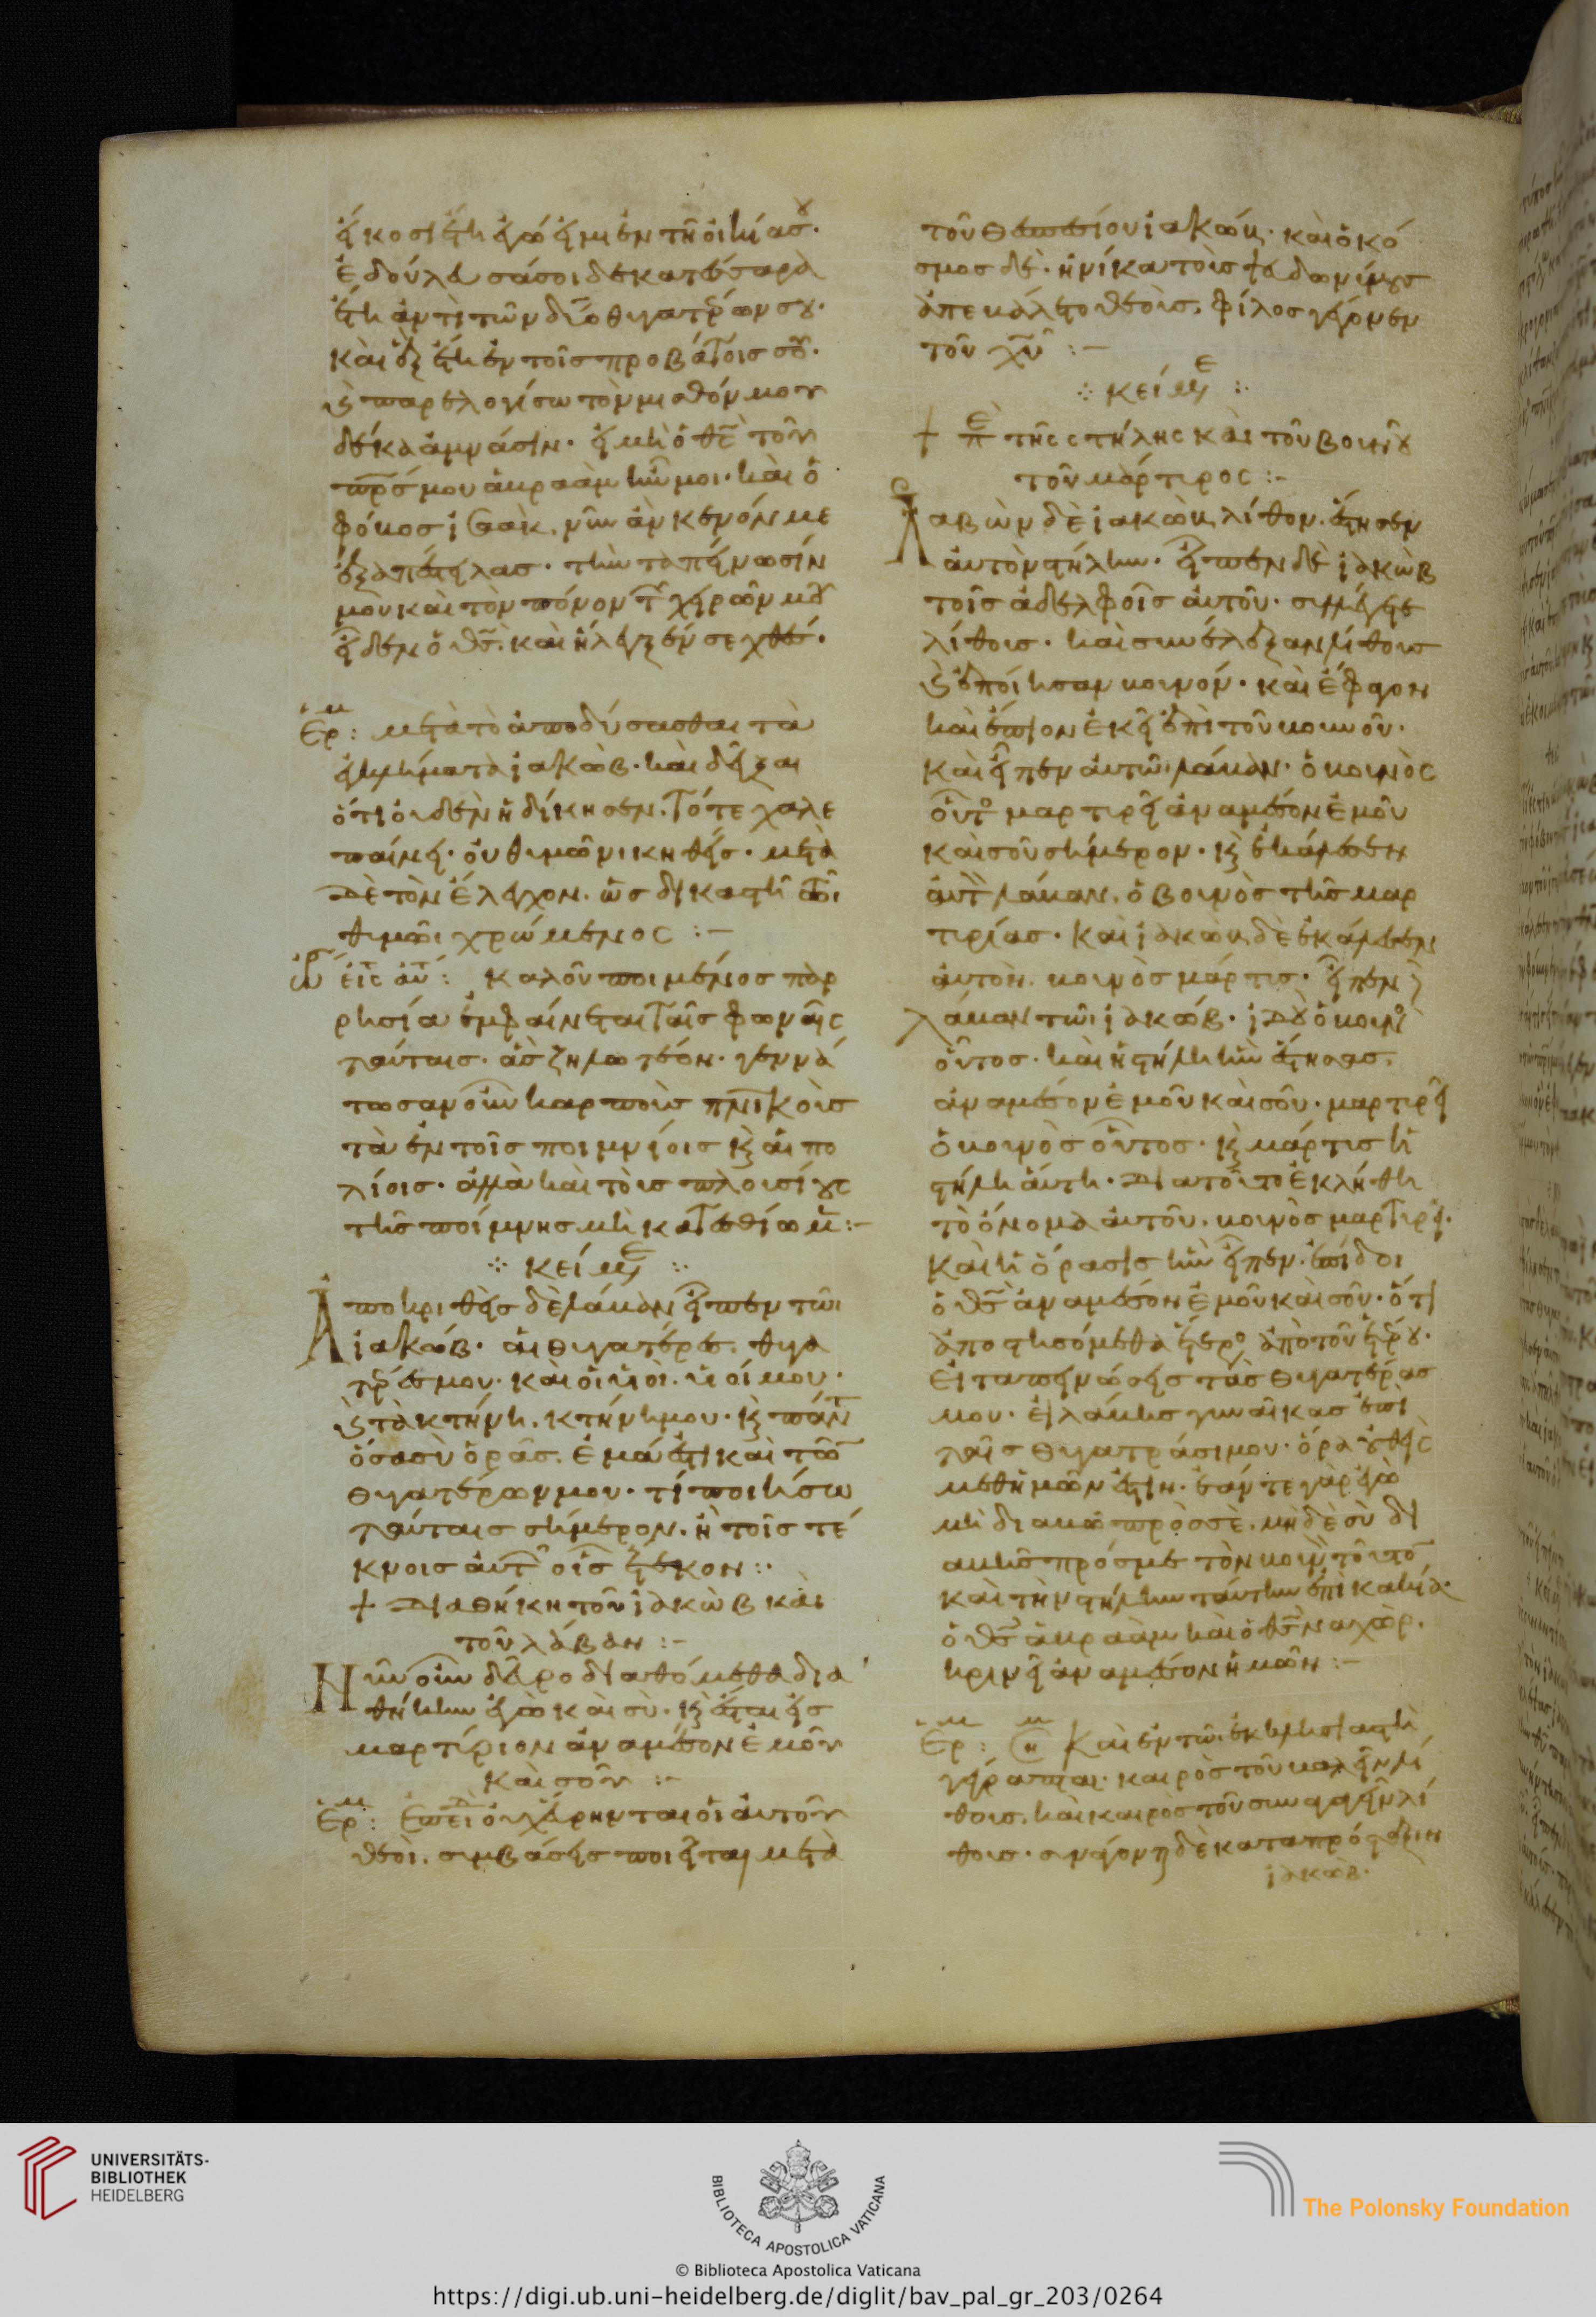 εἴκοσι ἔτη ἐγώ εἰμι ἐν τῆ οἰκίας·
ἐδούλευσά σοι δεκατέσαρα
ἔτη ἀντὶ τῶν δύο θυγατέρων σου·
καὶ ἓξ ἔτη ἐν τοῖς προβάτοις σου·
καὶ παρελογίσω τὸν μισθόν μου
δέκα ἀμνάσιν· εἰ μὴ ὁ θς τοῦ
πρς μου ἀβραὰμ ἦν μοι· καὶ ὁ
φόβος ἰσαὰκ, νῦν ἂν κενόν με
ἐξαπέστειλας· τὴν ταπείνωσίν
μου καὶ τὸν πόνον τ χειρῶν μου
εἶδεν ὁ θς. καὶ ἤλεγξέν σε χθές·
Ἐρμ: μετὰ τὸ ἀποδύσασθαι τὰ
ἐγκλήματα ἰακώβ· καὶ δεῖξαι
ὅτι οὐδὲν ἠδίκησεν. τότε χαλε
παίνει· οὐ θυμῶ νικηθείς· μετὰ
δὲ τὸν ἔλεγχον. ὡς δικαστὴ τῶι
θυμῶι χρώμενος :-
ὠρ εἰς αὐτ: καλοῦ ποιμένος παρ
ρησία ἐμφαίνεται ταῖς φωναῖς
ταύταις· ἃς ζηλωτέον. γεννά
τωσαν οὖν καρποὺς πνικοὺς
τὰ ἐν τοῖς ποιμνίοις καὶ αἰπο
λίοις· ἀλλὰ καὶ τοὺς πλουσίους
τῆς ποίμνης μὴ κατεσθίωμ :-
κείμε
Ἀποκριθεὶς δὲ λάβαν εἶπεν τῶι
ἰακώβ· αἱ θυγατέρες. θυγα
τέρες μου· καὶ οἱ υἱοὶ. υἱοί μου·
καὶ τὰ κτήνη. κτήνη μου· καὶ πάντ
ὅσα σὺ ὁρᾶς. ἐμά ἐστι καὶ τῶ
θυγατέρων μου· τί ποιήσω
ταύταις σήμερον. ἢ τοῖς τέ
κνοις αὐτ οἷς ἔτεκον :·
+ Διαθήκη τοῦ ἰακὼβ καὶ
τοῦ λάβαν :-
Νῦν οὖν δεῦρο διαθόμεθα δια
θήκην ἐγὼ καὶ σύ· καὶ ἔσται εἰς
μαρτύριον ἀναμέσον ἐμοῦ
καὶ σοῦ :-
Ἐρμ: Ἐπεὶ οὐχ εὕρηνται οἱ αὐτοῦ
θεοὶ. συμβάσεις ποιεῖται μετὰ
τοῦ θεοσεβ ἰακώβ· καὶ ὁ κό
σμος δὲ· ἡνίκα τοὺς
φίλος γέγονεν
τοῦ χυ :-
κείμε
+ περὶ τῆς στήλης καὶ τοῦ βουνοῦ
τοῦ μάρτυρος :-
Λαβὼν δὲ ἰακὼβ λίθον. ἔστησεν
αὐτὸν στήλην· εἶπεν δὲ ἰακὼβ
τοῖς ἀδελφοῖς αὐτοῦ· συλλέγετε
λίθους· καὶ συνέλεξαν λίθους
καὶ ἐποίησαν βουνόν· καὶ ἔφαγον
καὶ ἔπιον ἐκεῖ ἐπὶ τοῦ βουνοῦ·
καὶ εἶπεν αὐτῶι λάβαν· ὁ βουνὸς
οὗτος μαρτυρεῖ ἀναμέσον ἐμοῦ
καὶ σοῦ σήμερον· καὶ ἐκάλεσεν
αὐτ λάβαν. ὁ βουνὸς τῆς μαρ
τυρίας· καὶ ἰακὼβ δὲ ἐκάλεσεν
αὐτὸν. βουνὸς μάρτυς· εἶπεν
λάβαν τῶι ἰακώβ· ἰδοὺ ὁ βουνὸς
οὗτος· καὶ ἡ στήλη ἣν ἔστησας.
ἀναμέσον ἐμοῦ καὶ σοῦ· μαρτυρεῖ
ὁ βουνὸς οὗτος· καὶ μάρτυς ἡ
στήλη αὕτη· διατοῦτο ἐκλήθη
τὸ ὄνομα αὐτοῦ. βουνὸς μαρτυρεῖ·
καὶ ἡ ὅρασις ἣν εἶπεν· ἐπίδοι
ὁ θς ἀναμέσον ἐμοῦ καὶ σοῦ· ὅτι
ἀποστησόμεθα ἕτερος ἀπὸ τοῦ ἑτέρου·
εἰ ταπεινώσεις τὰς θυγατέρας
μου· εἰ λάβης γυναῖκας ἐπὶ
ταῖς θυγατράσι μου· ὅρα οὐθεὶς
μεθ ἡμῶν ἐστιν· ἐάν τε γὰρ ἐγὼ
μὴ διαβῶ πρὸς σὲ. μὴ δὲ σὺ δι
αβῆς πρός με τὸν βουνὸν τοῦτο
καὶ τὴν στήλην ταύτην ἐπὶ κακία·
ὁ θς ἀβραὰμ καὶ ὁ θς ναχώρ.
κρινεῖ ἀναμέσον ἡμῶν :-
Ἐρμ: Καὶ ἐν τῶι ἐκκλησιαστῆ
γέγραπται· καιρὸς τοῦ βαλεῖν λί
θους. καὶ καιρὸς τοῦ συναγαγεῖν λί
θους· συνάγονται δὲ κατα πρόσταξιν
ἰακώβ·
UNIVERSITÄTS-
BIBLIOTHEK
HEIDELBERG
BIBLIOTECA APOSTOLICA VATICANA
The Polonsky Foundation
© Biblioteca Apostolica Vaticana
https://digi.ub.uni-heidelberg.de/diglit/bav_pal_gr_203/0264